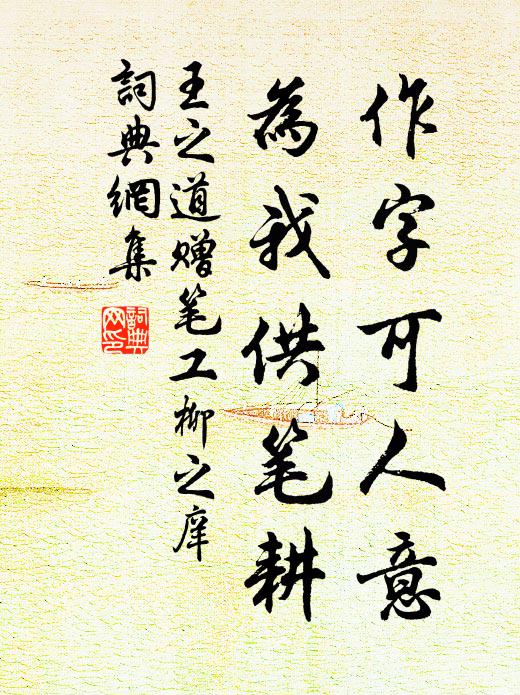 作字可人意
為我供笔耕
王之道赠笔工柳之庠
詞典網集
詞典网印